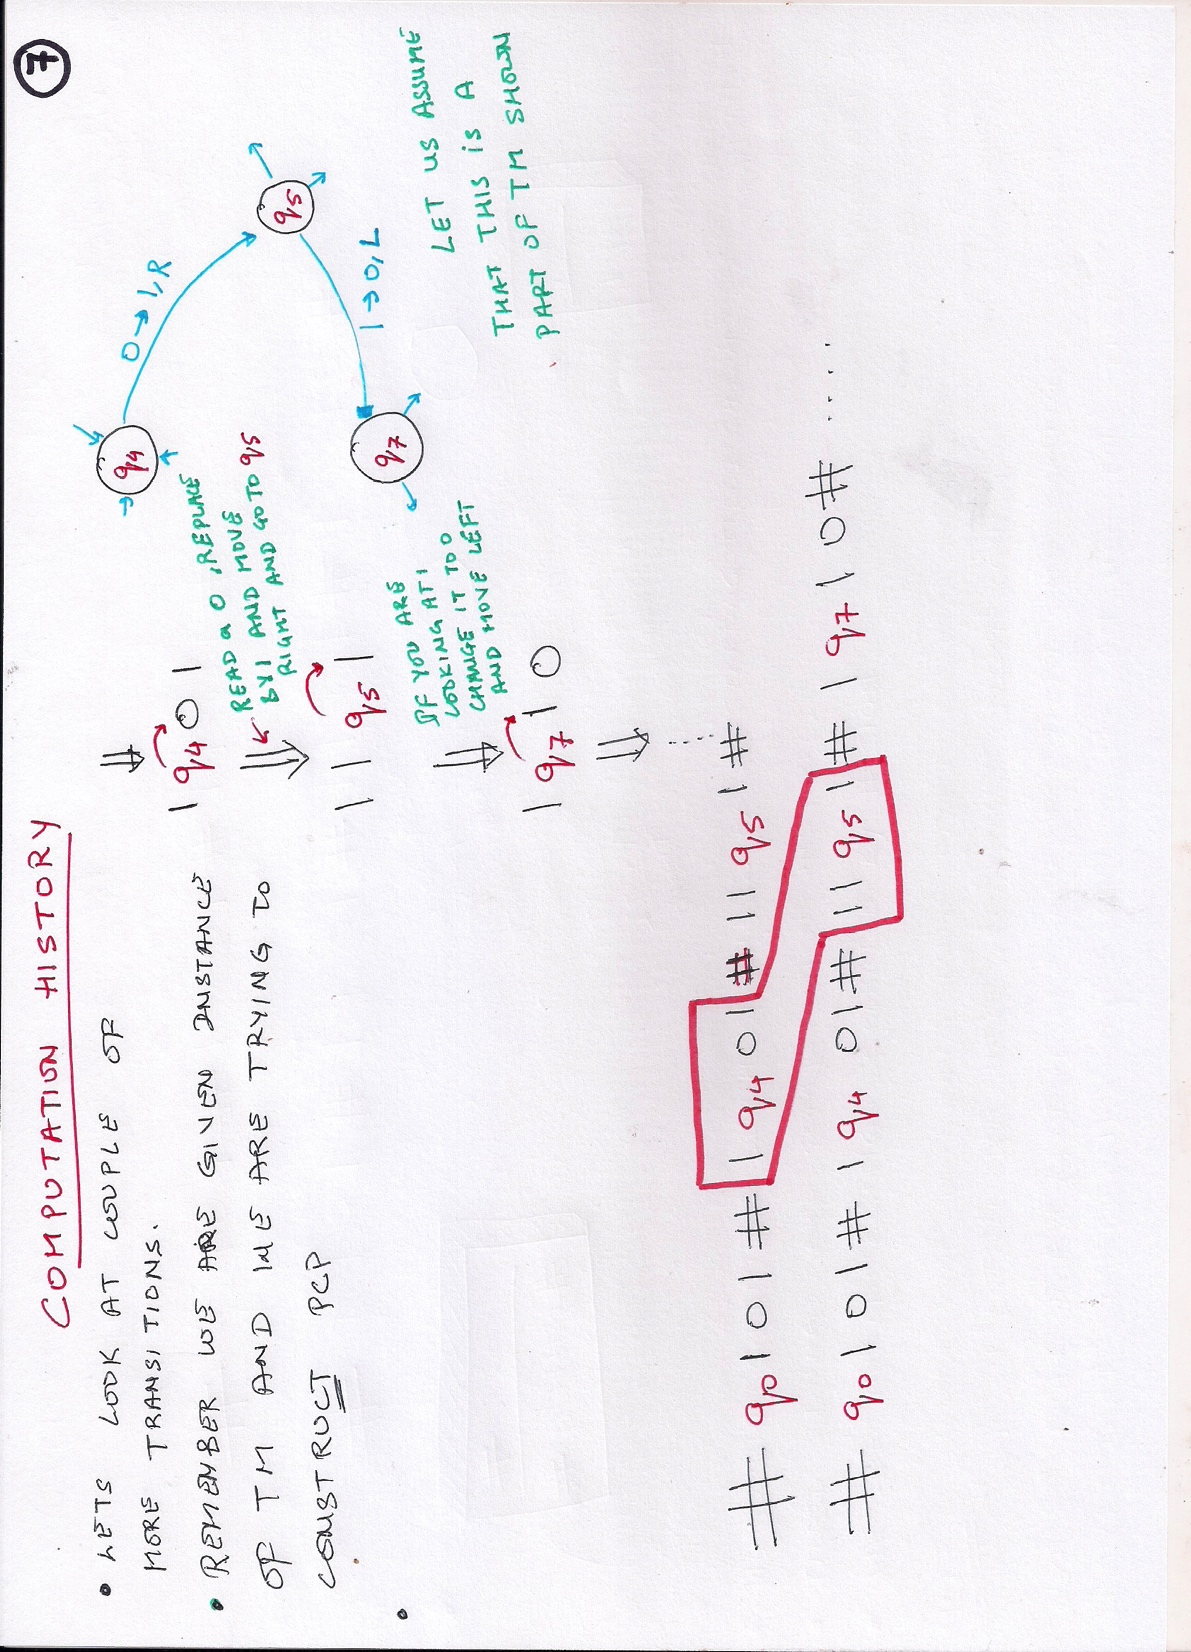 7
COMPUTATION HISTORY
• LETS LOOK AT COUPLE OF
MORE TRANSITIONS.
• REMEMBER WE ARE GIVEN INSTANCE
OF TM AND WE ARE TRYING TO
CONSTRUCT PCP
•
⇓
1 q4 0 1
⇓
READ a 0, REPLACE
BY 1 AND MOVE
RIGHT AND GO TO q5
1 1 q5 1
⇓
IF YOU ARE
LOOKING AT 1
CHANGE IT TO 0
AND MOVE LEFT
1 q7 1 0
⇓
q4
0 → 1, R
q5
1 → 0, L
q7
LET US ASSUME
THAT THIS IS A
PART OF TM SHOWN
# q0 1 0 1 # 1 q4 0 1 # 1 1 q5 1 # .....
# q0 1 0 1 # 1 q4 0 1 # 1 1 q5 1 # 1 q7 1 0 # .....